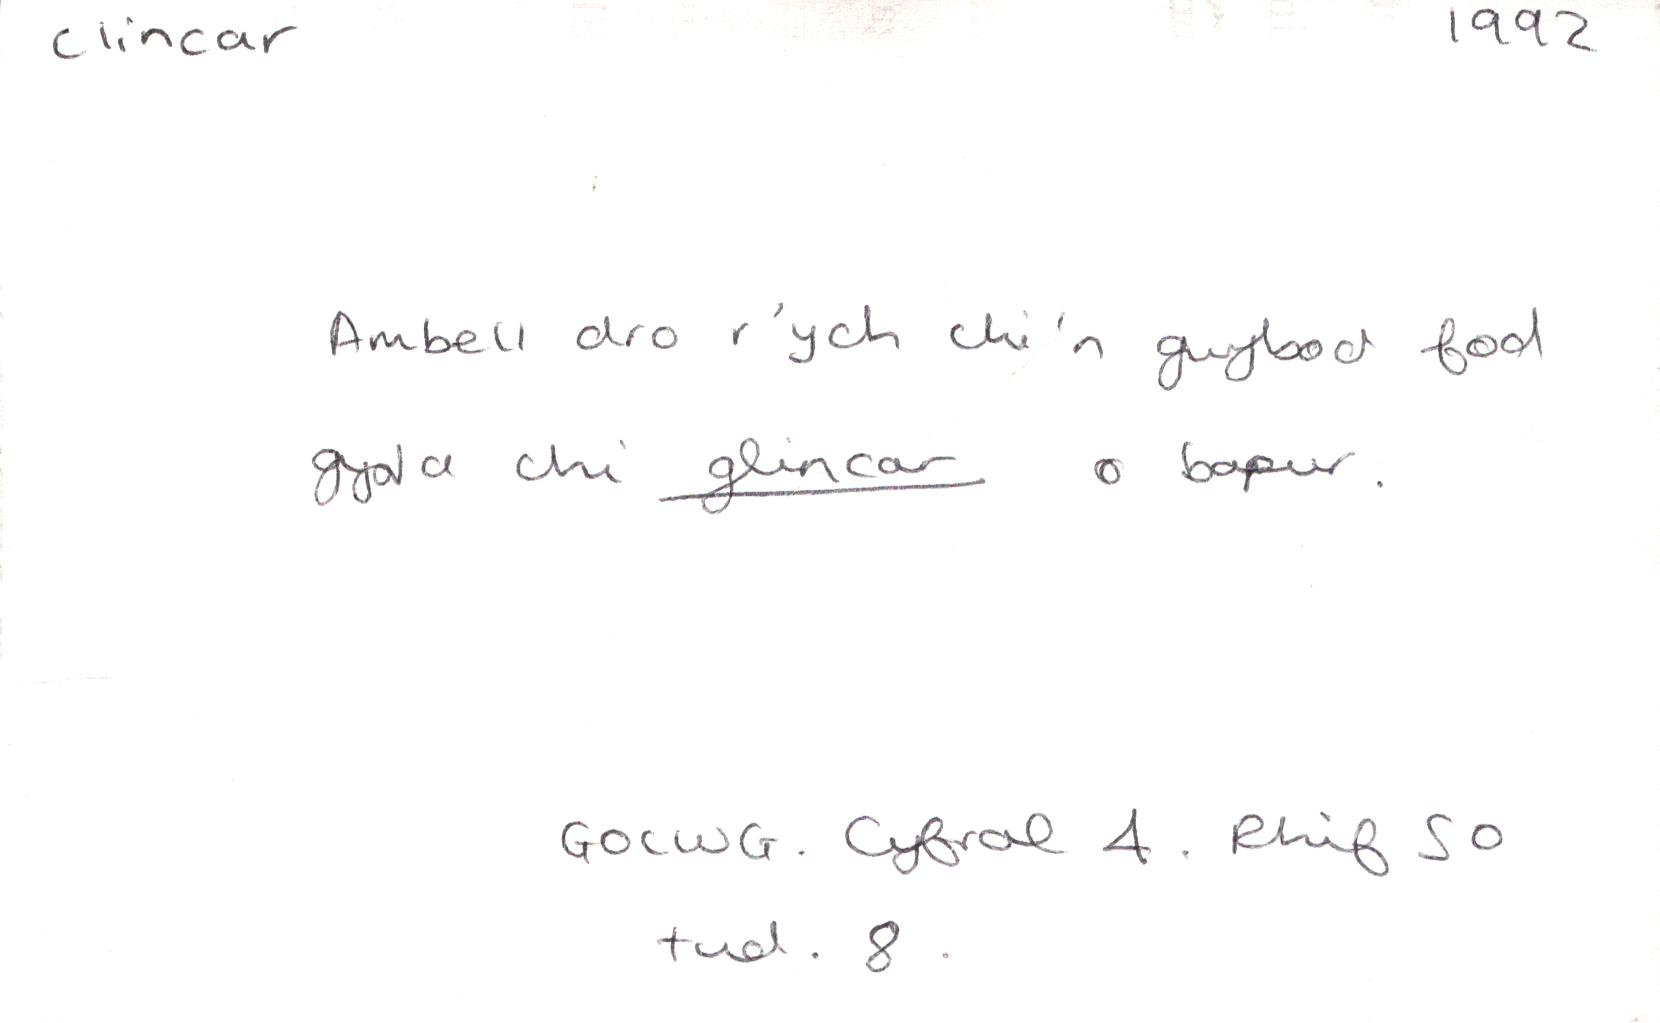 clincar 1992
Ambell dro r'ych chi'n gwybod fod
gyda chi glincar o bapur.
GOCWG. Cyfrol 4. Rhif 50
tud. 8.